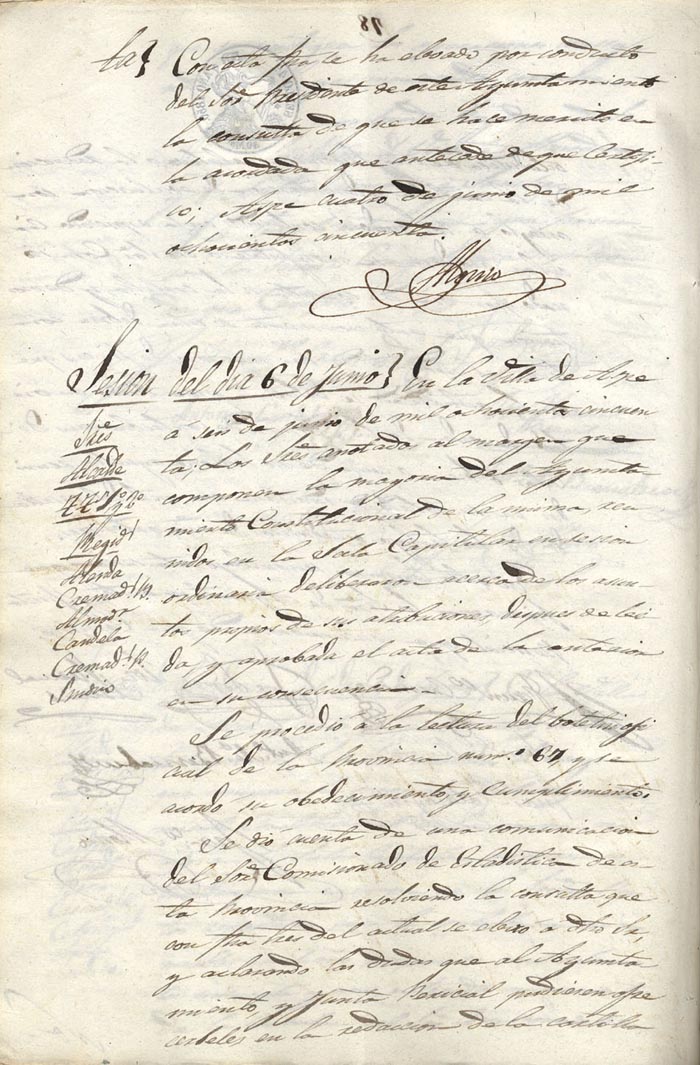 ta}
Con esta fha se ha elevado por conducto
del Sor. Presidente de este Ayuntamiento
la consulta de que se hace merito en
la acordada que antecede de que Certifi-
co; Aspe cuatro de junio de mil
ochocientos cincuenta.
Sesion del dia 6 de Junio} En la Villa de Aspe
á seis de junio de mil ochocientos cincuen
ta; Los Sres anotados al margen que
componen la mayoria del Ayunta
miento Constitucional de la misma, reu
nidos en la Sala Capitular en sesion
ordinaria deliberaron acerca de los asun-
tos propios de sus atribuciones, despues de lei
da y aprobada el acta de la anterior
en su consecuencia.
Sres
Alcalde
1º 2º
Regid.
Almodr.
Candela
Cremad.
Se procedió a la lectura del boletin ofi
cial de la Provincia num.º 67 y se
acordó su obedecimiento y cumplimiento
Se dió cuenta de una comunicacion
del Sor. Comisionado de Estadistica de es-
ta Provincia resolviendo la consulta que
con fha tres del actual se elevó a dho Sr,
y aclarando las dudas que al Ayunta
miento y Junta Pericial pudiesen ofre
cerseles en la redaccion de la cartilla